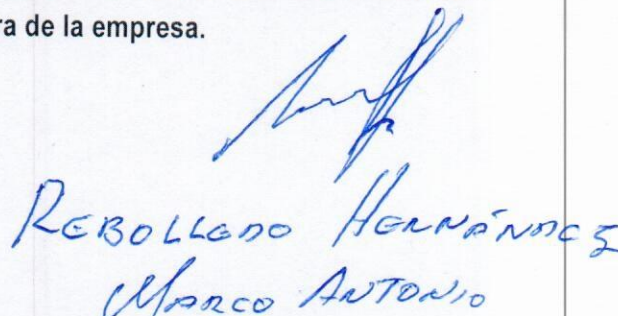 ra de la empresa.
REBOLLEDO HERNÁNDEZ
MARCO ANTONIO